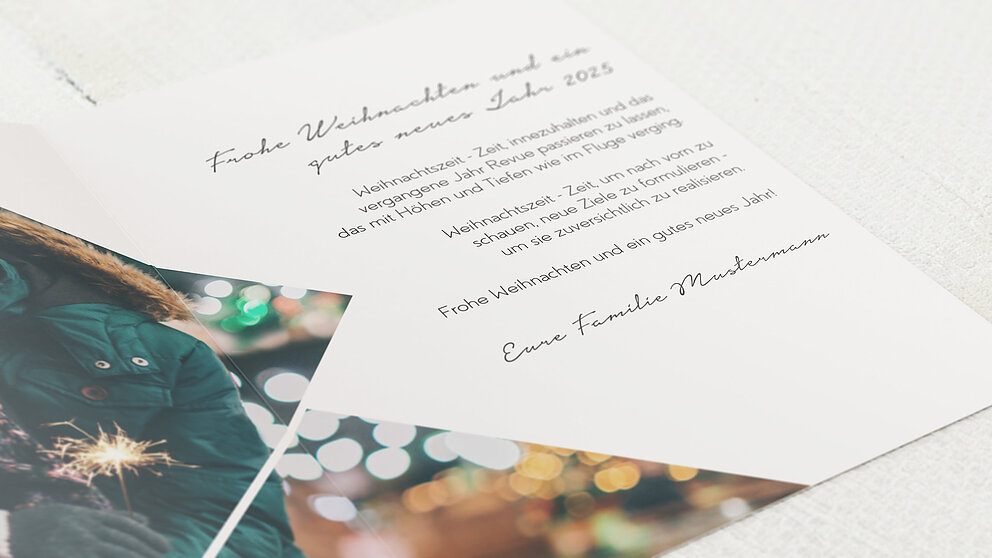 Frohe Weihnachten und ein
gutes neues Jahr 2025
Weihnachtszeit - Zeit, innezuhalten und das
vergangene Jahr Revue passieren zu lassen,
das mit Höhen und Tiefen wie im Fluge verging.
Weihnachtszeit - Zeit, um nach vorn zu
schauen, neue Ziele zu formulieren -
um sie zuversichtlich zu realisieren.
Frohe Weihnachten und ein gutes neues Jahr!
Eure Familie Mustermann